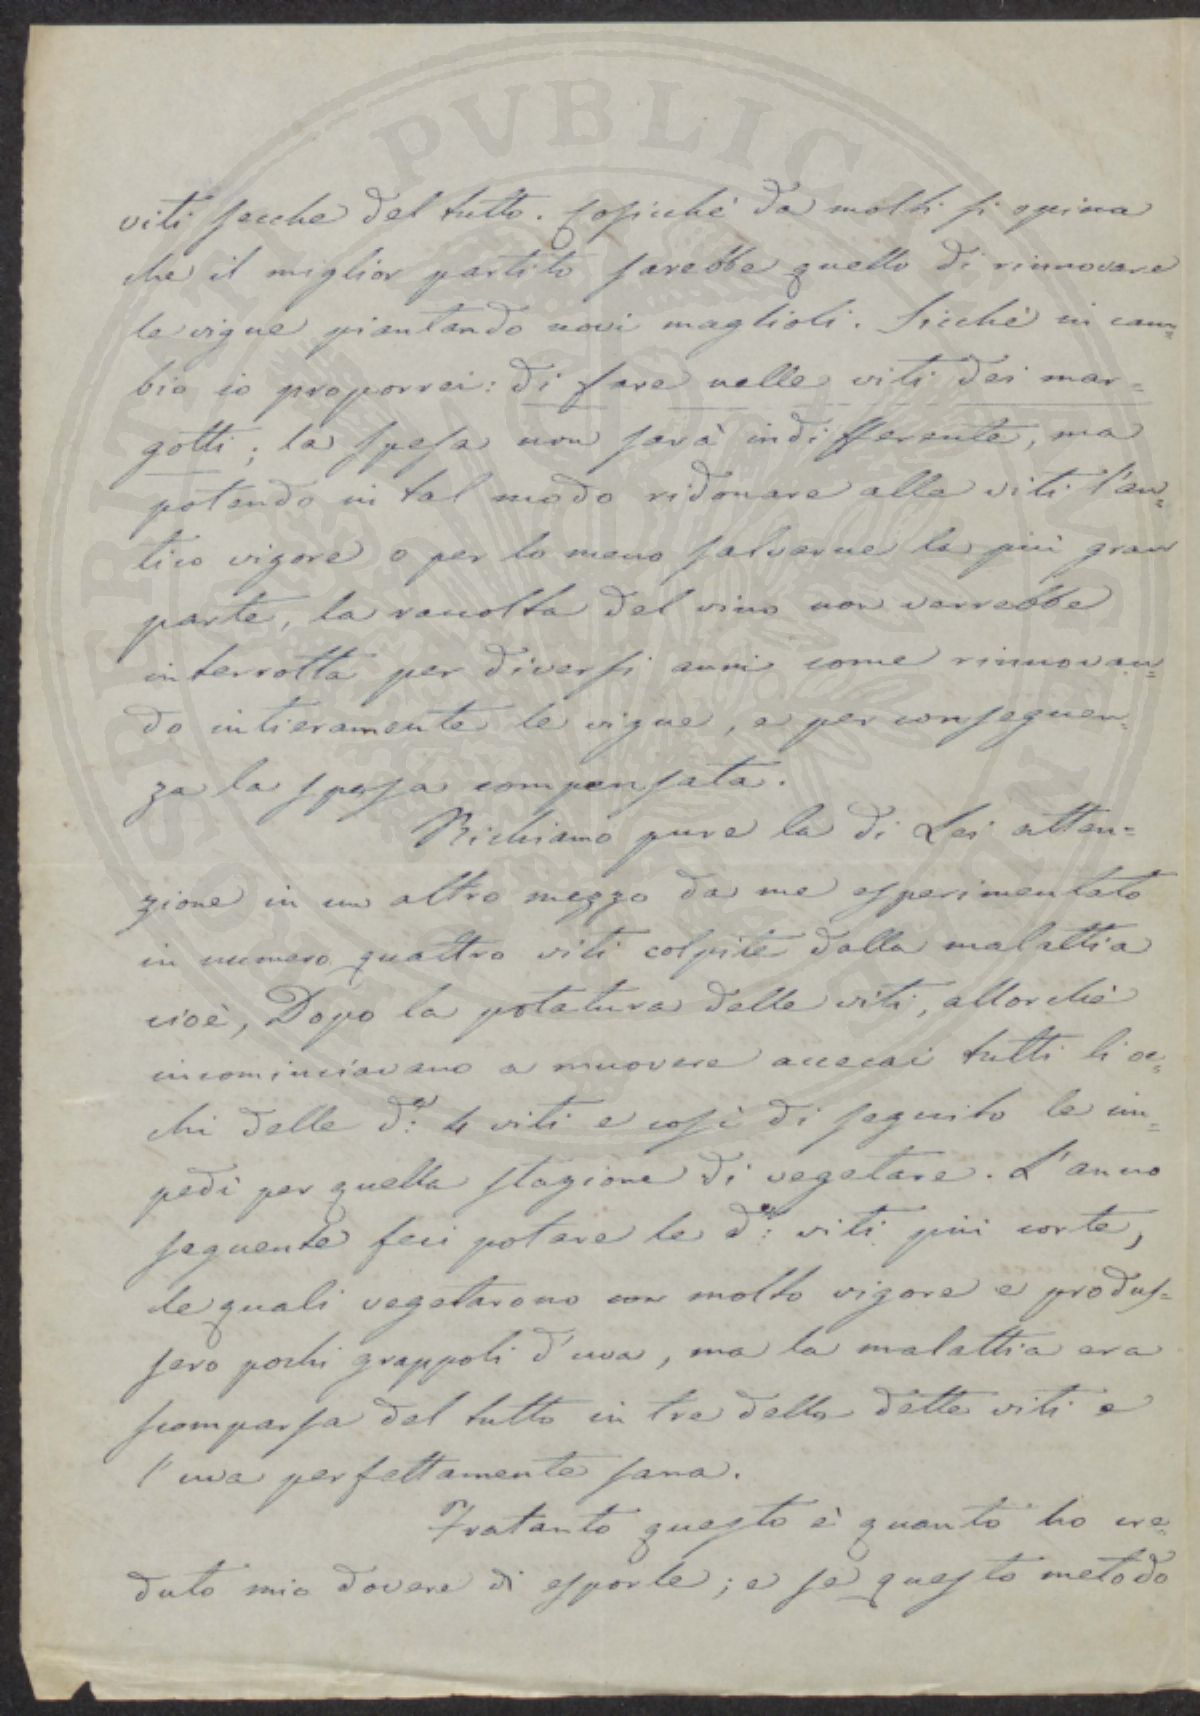 viti secche del tutto. Cosicché da molti si opina
che il miglior partito sarebbe quello di rinnovare
le vigne piantando novi maglioli. Sicché in cam=
bio io proporrei: di fare nelle viti dei mar=
gotti; la spesa non sarà indifferente, ma
potendo in tal modo ridonare alle viti l'an=
tico vigore o per lo meno salvarne la più gran
parte, la raccolta del vino non verrebbe
interrotta per diversi anni come rinnovan=
do intieramente le vigne, e per conseguen=
za la spesa compensata.
Richiamo pure la di Lei atten=
zione in un altro mezzo da me esperimentato
in numero quattro viti colpite dalla malattia
cioè, Dopo la potatura delle viti, allorché
incominciavano a muovere accecai tutti li oc=
chi delle d.e 4 viti e così di seguito le im=
pedì per quella stagione di vegetare. L'anno
seguente feci potare le d.e viti più corte,
le quali vegetarono con molto vigore e produs=
sero pochi grappoli d'uva, ma la malattia era
scomparsa del tutto in tre delle dette viti e
l'uva perfettamente sana.
Fratanto questo è quanto ho cre=
duto mio dovere di esporle; e se questo metodo
PVBLICA